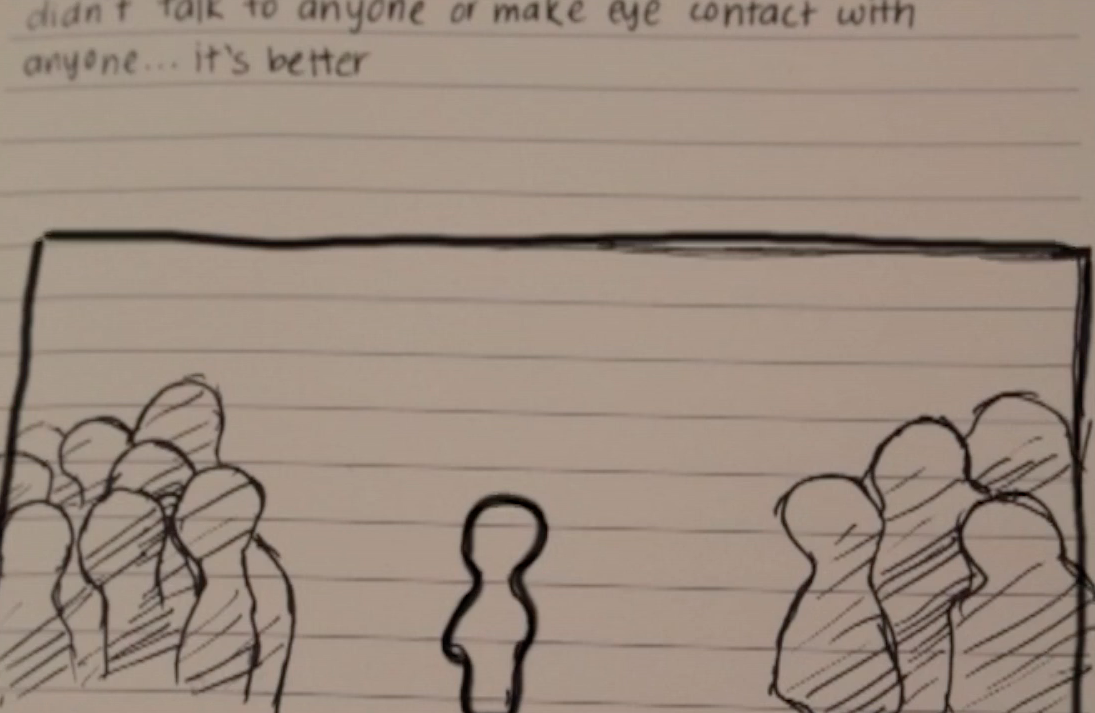 didn't talk to anyone or make eye contact with
anyone... it's better